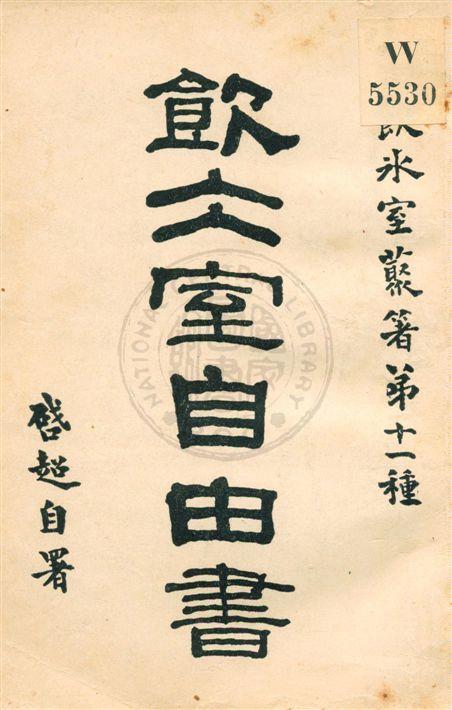 W
5530
飲冰室藂箸第十一種
飲仌室自由書
啓超自署
NATIONAL LIBRARY